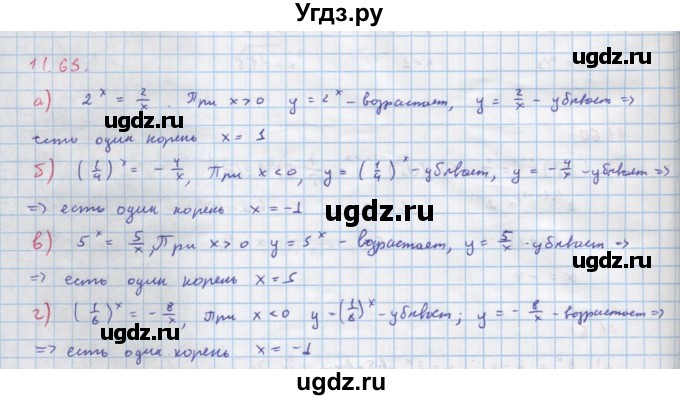 Угдз.ру
11.63.
а) 2^x = 2/x. При x>0 y = 2^x - возрастает, y = 2/x - убывает =>
есть один корень x = 1
б) (1/4)^x = - 4/x, При x<0, y = (1/4)^x - убывает, y = - 4/x - убывает =>
=> есть один корень x = -1
в) 5^x = 5/x, При x>0 y = 5^x - возрастает, y = 5/x - убывает =>
=> есть один корень x = 5
г) (1/8)^x = - 8/x, При x<0 y - (1/8)^x - убывает; y = - 8/x - возрастает =>
=> есть один корень x = -1
ugdz.ru
ugdz.ru
ugdz.ru
ugdz.ru
ugdz.ru
ugdz.ru
ugdz.ru
ugdz.ru